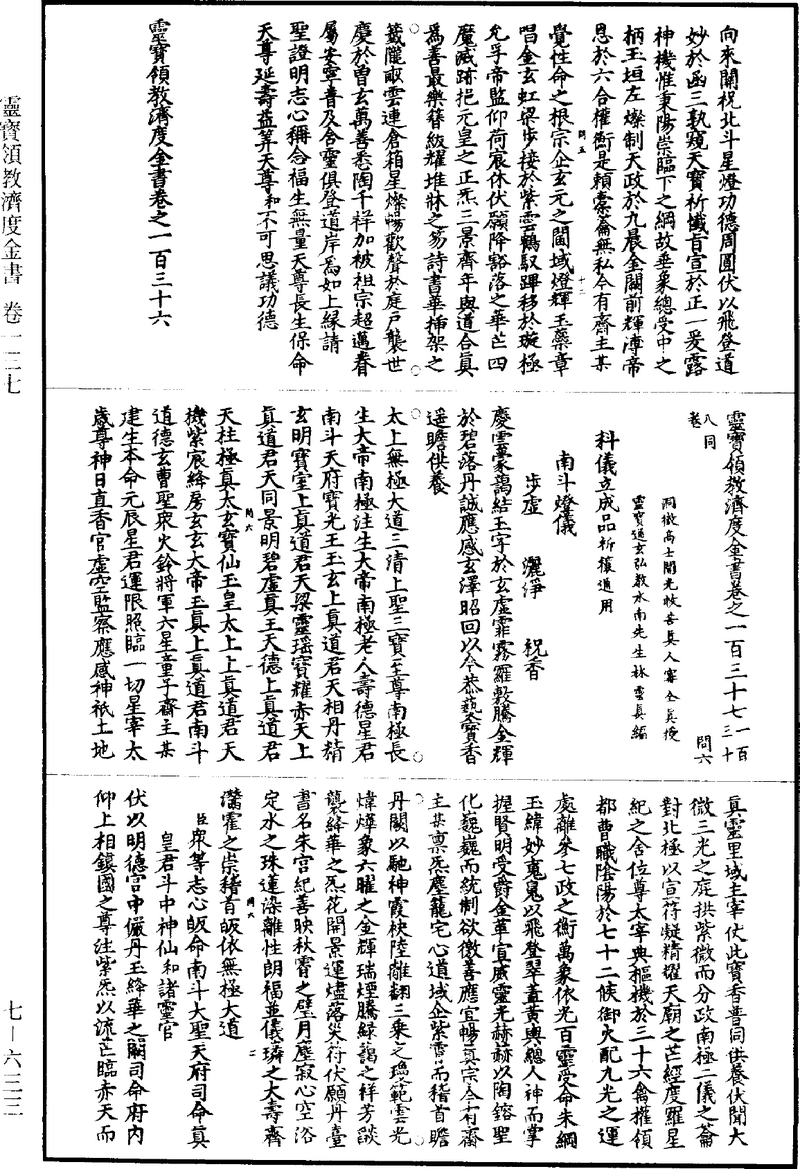 靈寶領教濟度金書 卷一三七
七—六三二
向來關祝北斗星燈功德周圓伏以飛登道
妙於函三執窺天寶祈懺旨宣於正一爰露
神機惟秉陽崇臨下之綱故垂象總受中之
柄玉垣左燦制天政於九晨金闕前輝濟帝
恩於六合權衡是賴橐籥無私今有齋主某
覺性命之根宗企玄元之閫域燈輝玉蘂章
問五
十二
唱金玄虹彩步接於紫雲鶴馭蹕移於璇極
允孚帝監仰荷宸休伏願降豁落之華芒四
魔滅跡挹元皇之正炁三景齊年與道合真
為善最樂簪紱耀堆牀之笏詩書華插架之
籤隴畝雲連倉箱星燦暢歡聲於庭戶襲世
慶於曾玄萬善悉陶千祥加被祖宗超邁眷
屬安寧普及含靈俱登道岸為如上緣請
聖證明志心稱念福生無量天尊長生保命
天尊延壽益筭天尊和不可思議功德
靈寶領教濟度金書卷之一百三十六
靈寶領教濟度金書卷之一百三十七 一百三十
八同卷
問六
洞微高士開光救苦真人甯全真授
靈寶通玄弘教水南先生林靈真編
科儀立成品祈禳通用
南斗燈儀
步虛 灑淨 祝香
慶雲靄藹結玉字於玄虛霏霧羅敷騰金輝
於碧落丹誠應感玄澤昭回以今恭爇寶香
遥瞻供養
太上無極大道三清上聖三寶至尊南極長
生大帝南極注生大帝南極老人壽德星君
南斗天府寶光王玉玄上真道君天相丹精
玄明寶室上真道君天梁靈瑶寶耀赤天上
真道君天同景明碧虛真王天德上真道君
問六
一
天柱極真太玄寶仙玉皇太上上真道君天
機紫宸絳房玄玄大帝玉真上真道君南斗
道德玄曹聖眾火鈴將軍六星童子齋主某
建生本命元辰星君運限照臨一切星宰太
歲尊神日直香官虛空監察應感神祇土地
真靈里域主宰仗此寶香普同供養伏聞大
微三光之庭拱紫微而分政南極二儀之籥
對北極以宣符凝精耀天廟之芒經度羅星
紀之舍位尊太宰典樞機於三十六禽權領
都曹職陰陽於七十二候御火配九光之運
處離朱七政之衡萬象依光百靈受命朱綱
玉緯妙嵬嵬以飛登翠蓋黃輿總人神而掌
握賢明受爵金革宣威靈光赫赫以陶鎔聖
化巍巍而統制欲徼善應宜暢真宗今有齋
主某稟炁塵籠宅心道域企紫霄而稽首瞻
丹闕以馳神霞映陸離翻三乘之瓊範雲光
煒燁象六曜之金輝瑞煙騰綠藹之祥芳談
襲絳華之炁花開景運燼落災符伏願丹臺
書名朱宮紀善映秋霄之璧月塵寂心空浴
定水之珠蓮染離性朗福並儀璘之大壽齊
問六
二
瀟霍之崇稽首皈依無極大道
臣眾等志心皈命南斗大聖天府司命真
皇君斗中神仙和諸靈官
伏以明德宮中儼丹玉絳華之闕司命府內
仰上相鎮國之尊注紫炁以流芒臨赤天而